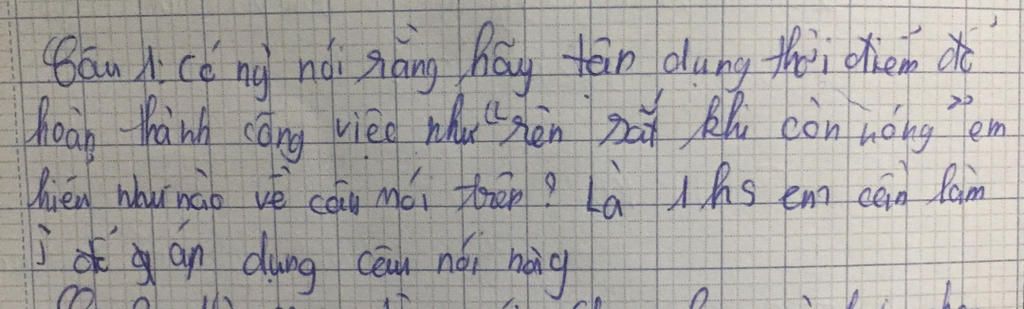 Câu 1: Có ng nói rằng hãy tận dụng thời điểm để
hoàn thành công việc như "rèn sắt khi còn nóng" em
hiểu như nào về câu nói trên? Là 1 hs em cần làm
j để áp dụng câu nói này